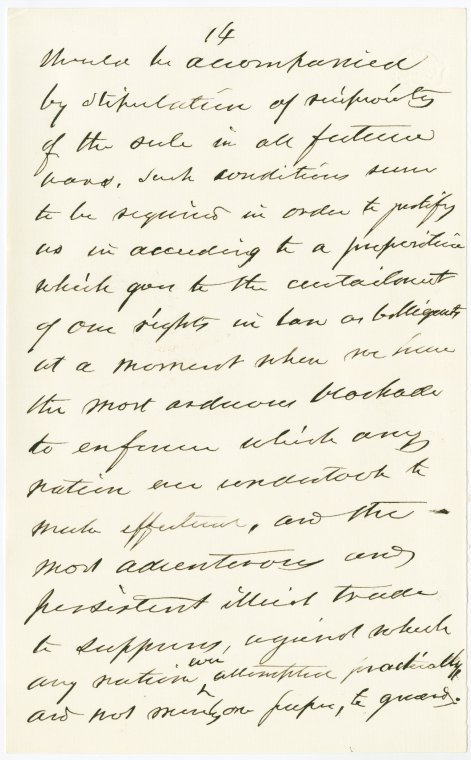 14
should be accompanied
by stipulation of reciprocity
of the rule in all future
wars. Such conditions seem
to be required in order to justify
us in acceeding to a proposition
which goes to the curtailment
of our rights in law as belligerents
at a moment when we have
the most arduous blockade
to enforce which any
nation ever undertook to
make effectual, and the
most adventerous and
persistent illicit trade
to suppress, against which
any nation ever attempted practically
and not merely on paper, to guard.